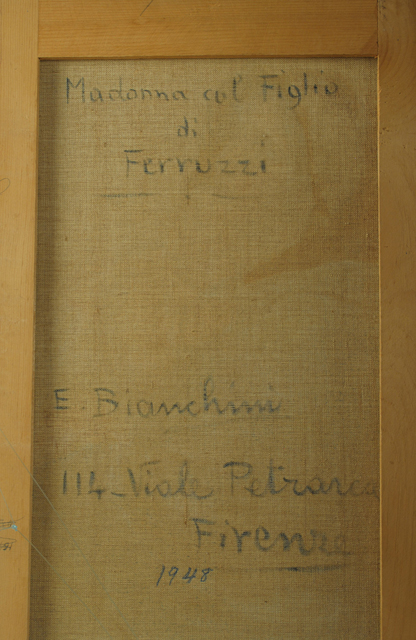 Madonna col' Figlio
di
Ferruzzi
E. Bianchini
114 - Viale Petrarca
Firenze
1948